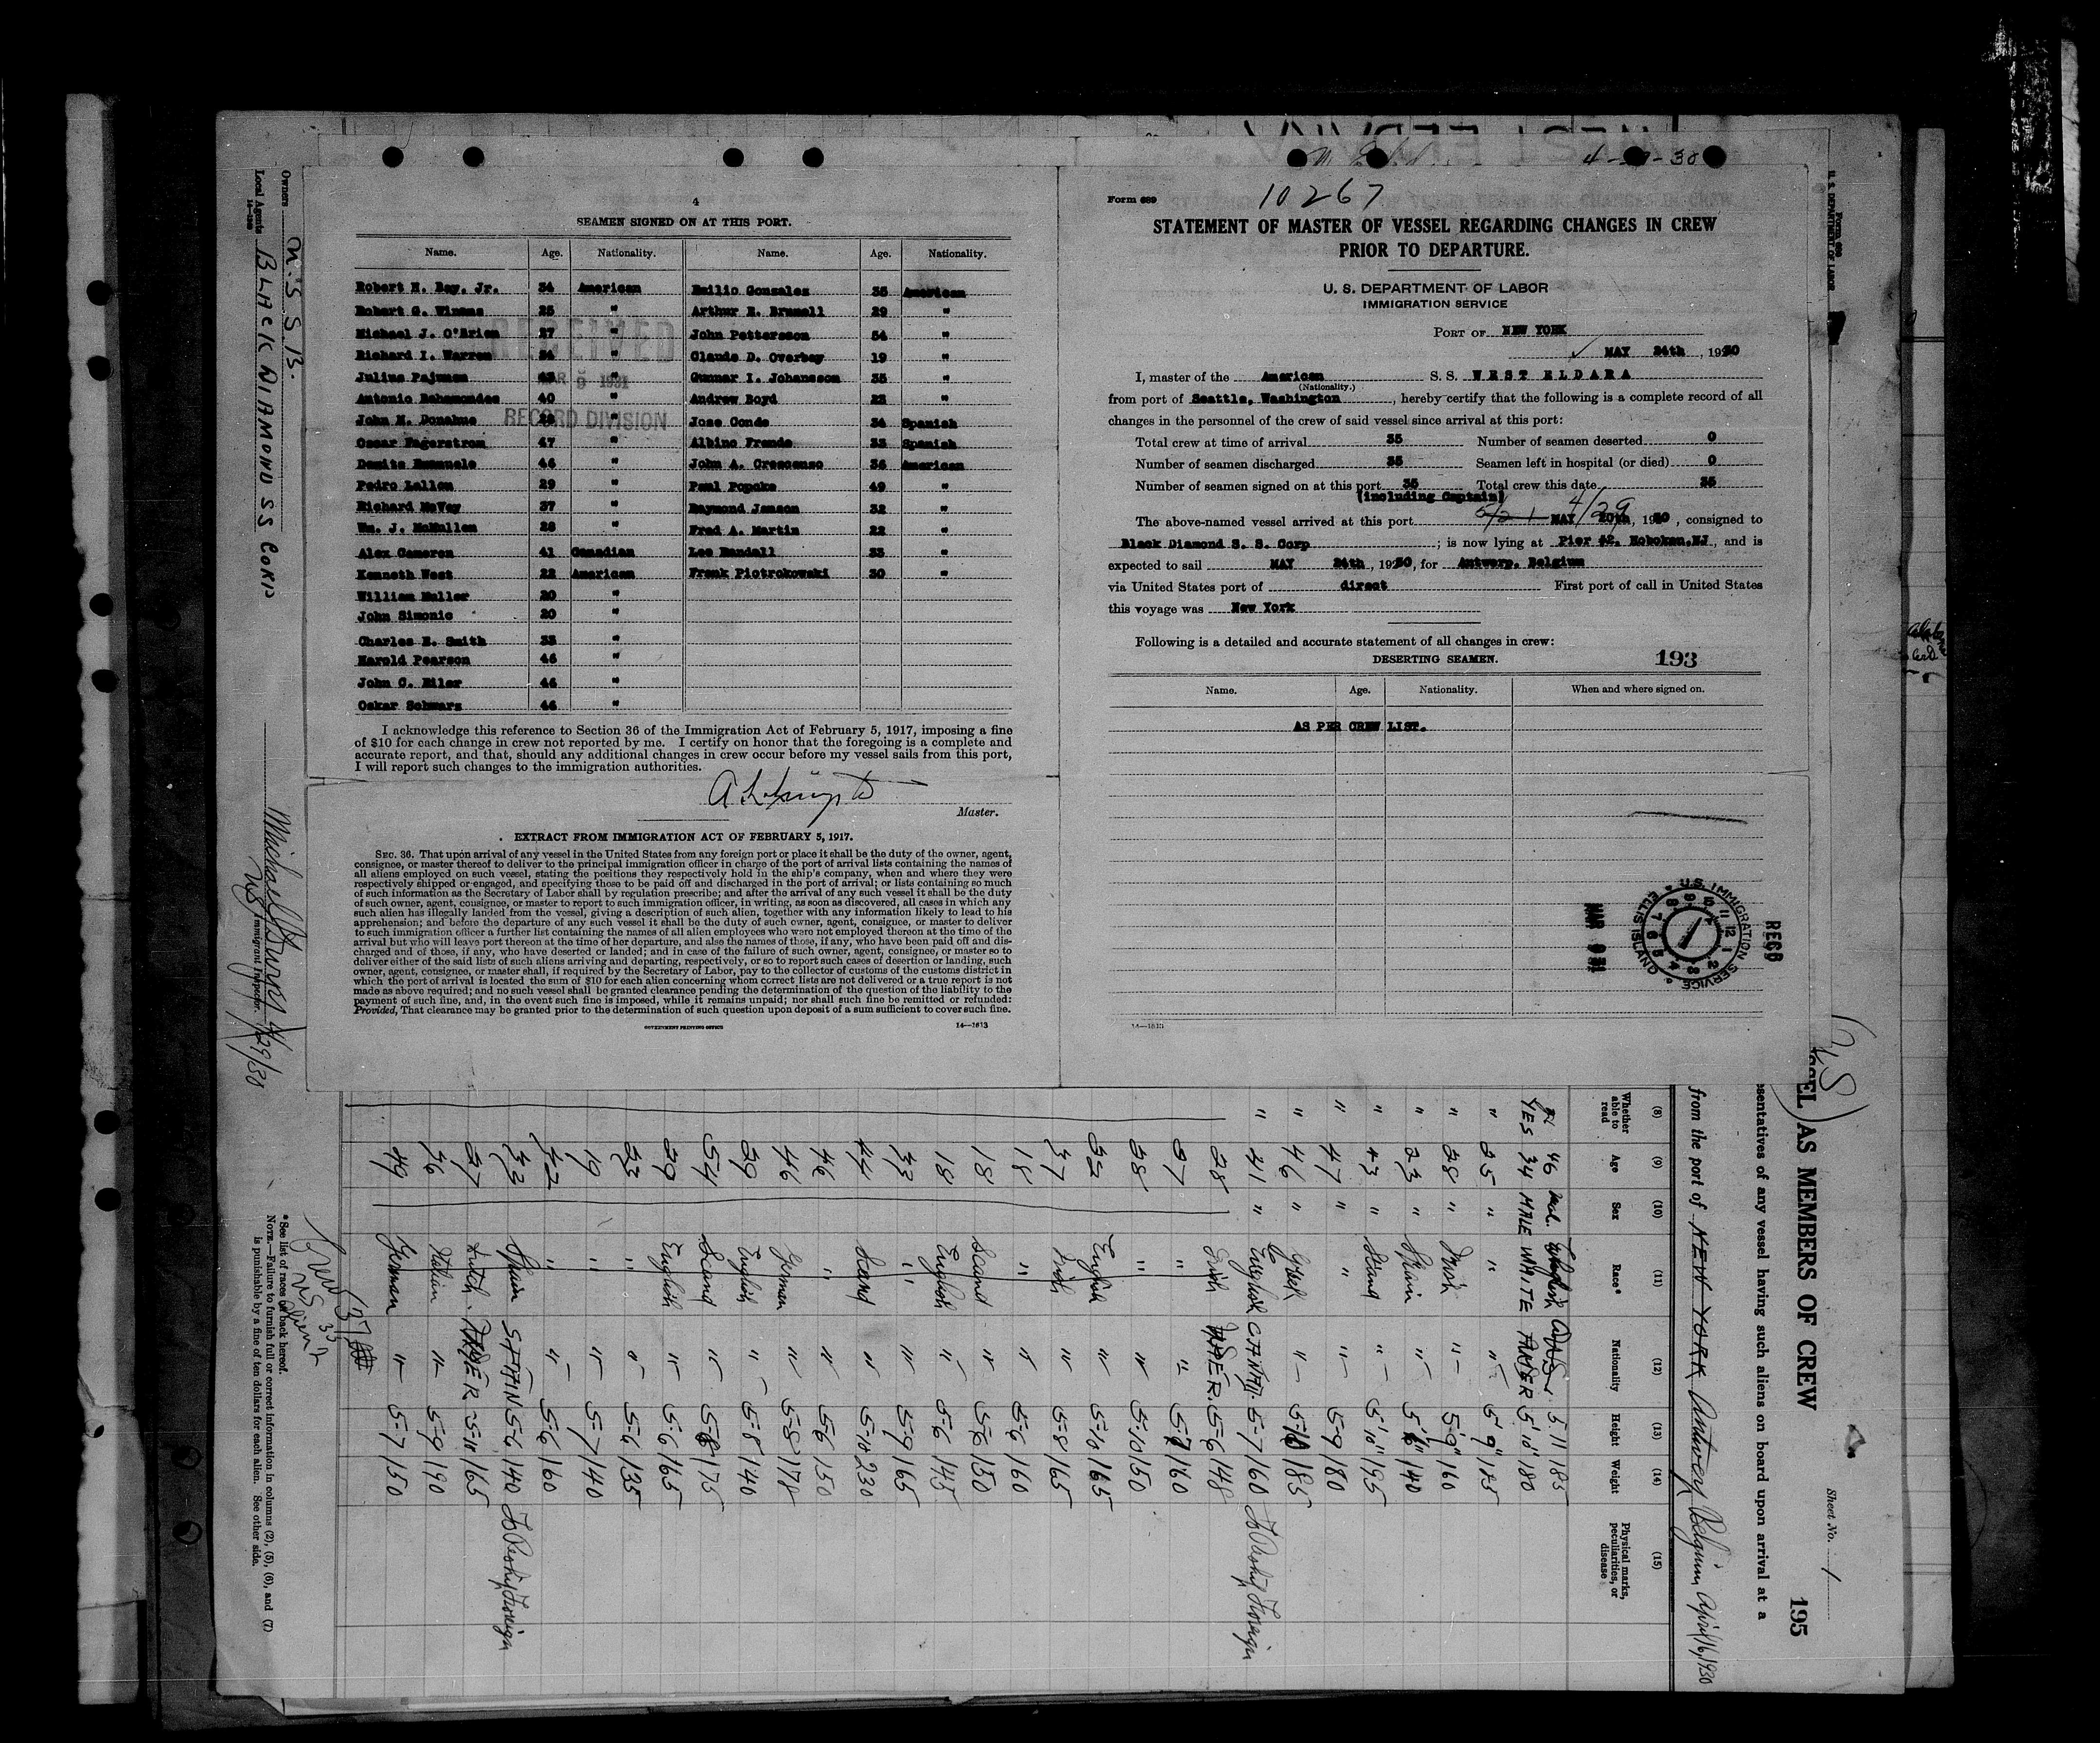 4
SEAMEN SIGNED ON AT THIS PORT.
Name. Age. Nationality. Name. Age. Nationality.
Robert H. Ray, Jr. 34 American Emilio Gonzales 35 American
Robert G. Winans 25 " Arthur E. 29 "
Michael J. O'Brien 27 " John Pettersson 54 "
Richard I. Warren 24 " Claude D. Overbey 19 "
Julius Pajunen " Gunnar I. Johansson 35 "
Antonio Bahamondes 40 " Andrew Boyd 22 "
John M. Donahue " Jose Conde 34 Spanish
Oscar Fagerstrom 47 " Albino Frende 33 Spanish
Emanuele 46 " John A. Crescenso 36 American
Pedro Lallou 29 " Paul Popoke 49 "
Richard McVey 37 " Raymond Janson 32 "
Wm. J. McMullen 28 " Fred A. Martin 22 "
Alex Cameron 41 Canadian Lee Randall 33 "
Kenneth West 22 American Frank Piotrokowski 30 "
William Muller 20 "
John Simonic 20 "
Charles E. Smith 33 "
Harold Pearson 46 "
John C. Eiler 44 "
Oskar Schwarz 46 "
RECEIVED
MAR 9 1931
RECORD DIVISION
I acknowledge this reference to Section 36 of the Immigration Act of February 5, 1917, imposing a fine
of $10 for each change in crew not reported by me. I certify on honor that the foregoing is a complete and
accurate report, and that, should any additional changes in crew occur before my vessel sails from this port,
I will report such changes to the immigration authorities.
Master.
EXTRACT FROM IMMIGRATION ACT OF FEBRUARY 5, 1917.
SEC. 36. That upon arrival of any vessel in the United States from any foreign port or place it shall be the duty of the owner, agent,
consignee, or master thereof to deliver to the principal immigration officer in charge of the port of arrival lists containing the names of
all aliens employed on such vessel, stating the positions they respectively hold in the ship's company, when and where they were
respectively shipped or engaged, and specifying those to be paid off and discharged in the port of arrival; or lists containing so much
of such information as the Secretary of Labor shall by regulation prescribe; and after the arrival of any such vessel it shall be the duty
of such owner, agent, consignee, or master to report to such immigration officer, in writing, as soon as discovered, all cases in which any
such alien has illegally landed from the vessel, giving a description of such alien, together with any information likely to lead to his
apprehension; and before the departure of any such vessel it shall be the duty of such owner, agent, consignee, or master to deliver
to such immigration officer a further list containing the names of all alien employees who were not employed thereon at the time of the
arrival but who will leave port thereon at the time of her departure, and also the names of those, if any, who have been paid off and dis-
charged and of those, if any, who have deserted or landed; and in case of the failure of such owner, agent, consignee, or master so to
deliver either of the said lists of such aliens arriving and departing, respectively, or so to report such cases of desertion or landing, such
owner, agent, consignee, or master shall, if required by the Secretary of Labor, pay to the collector of customs of the customs district in
which the port of arrival is located the sum of $10 for each alien concerning whom correct lists are not delivered or a true report is not
made as above required; and no such vessel shall be granted clearance pending the determination of the question of the liability to the
payment of such fine, and, in the event such fine is imposed, while it remains unpaid; nor shall such fine be remitted or refunded:
Provided, That clearance may be granted prior to the determination of such question upon deposit of a sum sufficient to cover such fine.
GOVERNMENT PRINTING OFFICE 14—1613
Form 689
10267
STATEMENT OF MASTER OF VESSEL REGARDING CHANGES IN CREW
PRIOR TO DEPARTURE.
U. S. DEPARTMENT OF LABOR
IMMIGRATION SERVICE
PORT OF NEW YORK
MAY 24th, 1930
I, master of the American S. S. WEST ELDARA
(Nationality.)
from port of Seattle, Washington, hereby certify that the following is a complete record of all
changes in the personnel of the crew of said vessel since arrival at this port:
Total crew at time of arrival 35 Number of seamen deserted 0
Number of seamen discharged 35 Seamen left in hospital (or died) 0
Number of seamen signed on at this port 35 Total crew this date 35
(including Captain)
The above-named vessel arrived at this port 5/21 MAY 20th 4/29, 1930, consigned to
Black Diamond S. S. Corp; is now lying at Pier #2, Hoboken, NJ, and is
expected to sail MAY 24th, 1930, for Antwerp, Belgium
via United States port of direct First port of call in United States
this voyage was New York
Following is a detailed and accurate statement of all changes in crew:
DESERTING SEAMEN. 193
Name. Age. Nationality. When and where signed on.
AS PER CREW LIST.
REC'D
U.S. IMMIGRATION SERVICE ELLIS ISLAND
14—1613
Owners U.S.S.B.
Local Agents BLACK DIAMOND SS CORP
14—1240
Immigrant Inspector. 4/29/30
Form 689
U. S. DEPARTMENT OF LABOR
AS MEMBERS OF CREW
Sheet No. 1
195
sentatives of any vessel having such aliens on board upon arrival at a
from the port of NEW YORK Antwerp, Belgium, April 16, 1930
(8) Whether able to read (9) Age (10) Sex (11) Race* (12) Nationality (13) Height (14) Weight (15) Physical marks, peculiarities, or disease
46 5.11 185
YES 34 MALE WHITE AMER 5'10" 180
" 25 " " " 5'9" 185
" 28 " Irish " 5'9" 160
" 23 " Spain " 140
" 43 " Scand " 5'10" 195
" 47 " " " 5-9 180
" 46 " Greek " 185
" 41 " English CANAD. 5-7 160 To Reship Foreign
28 Irish 5-6 148
37 " " 160
38 " " 5-10 150
32 English " 5-10 165
37 Irish " 5-8 165
18 " " 5-6 160
18 Scand " 5-6 150
18 English " 5-6 145
33 " " 5-9 165
44 Scand " 5-10 230
46 " " 5-6 150
46 German " 5-8 178
29 English " 5-8 140
54 Scand " 175
29 English " 5-6 165
23 " " 5-6 135
19 " " 5-7 140
42 " " 5-6 160
33 Spain SPAIN 5-6 140 To Reship Foreign
27 Dutch 5-10 165
36 Italian " 5-9 190
49 German " 5-7 150
*See list of races on back hereof.
NOTE.—Failure to furnish full or correct information in columns (2), (5), (6), and (7)
is punishable by a fine of ten dollars for each alien. See other side.